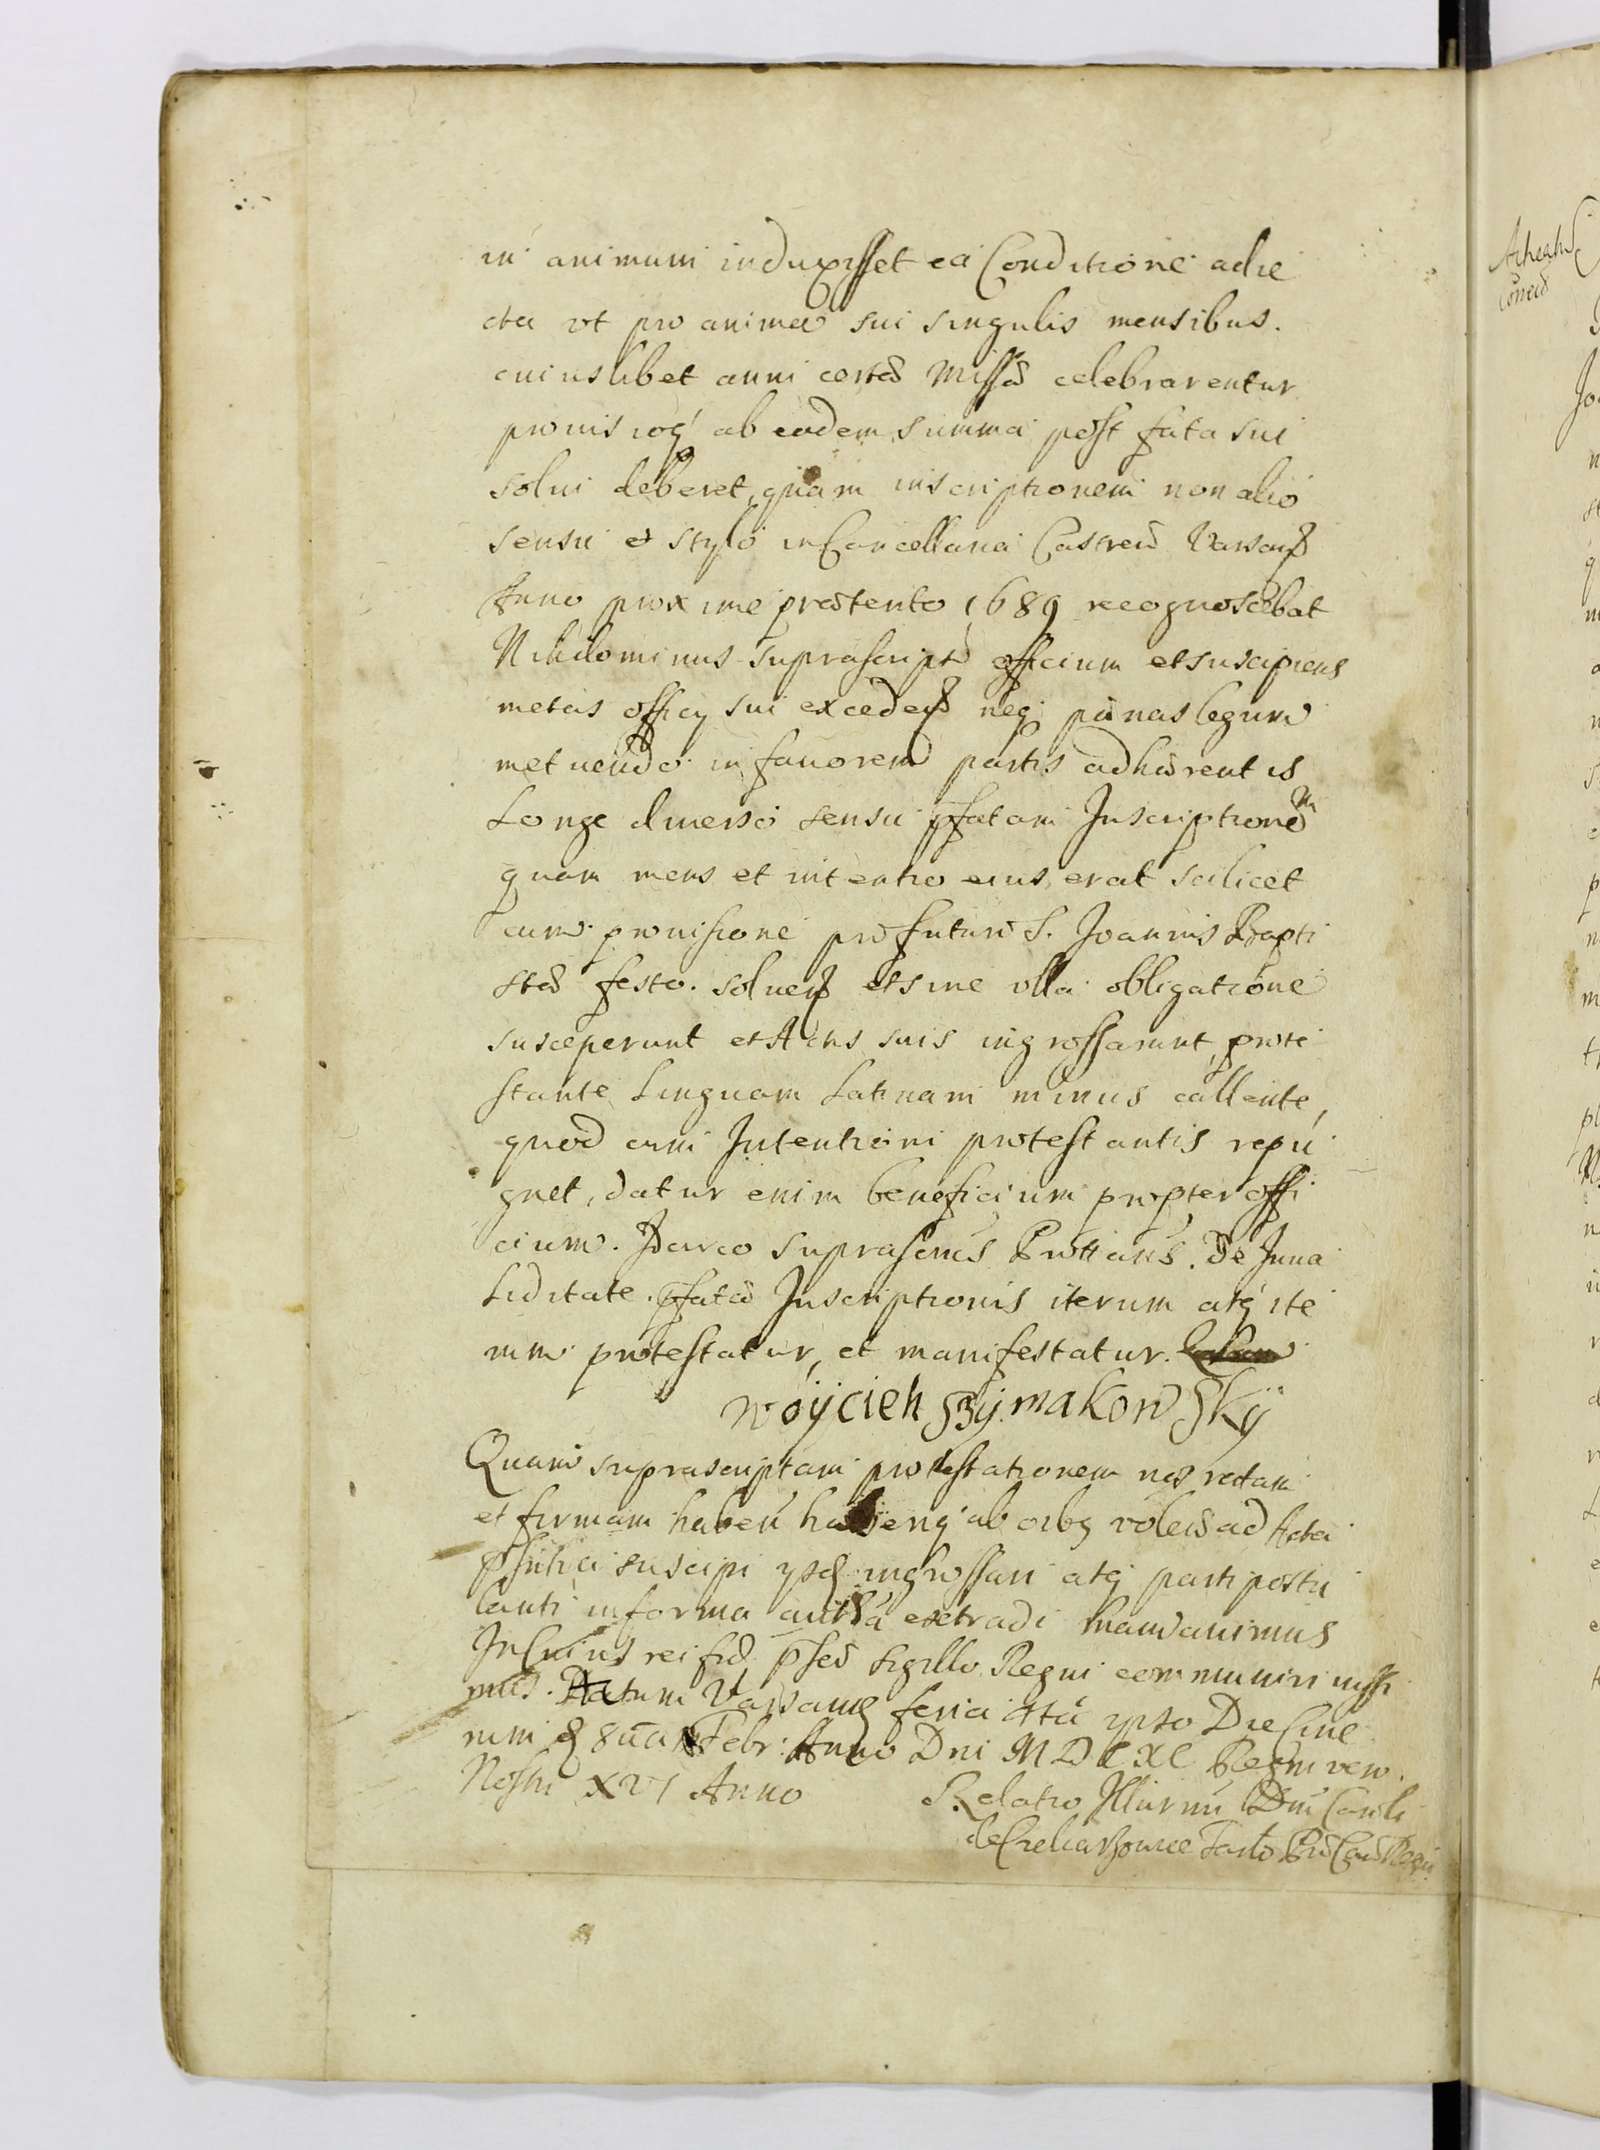 in animum induxisset ea Conditione adie
cta vt pro anima sui singulis mensibus.
cuiuslibet anni certæ Missæ celebrarentur
prouisioq́ ab eadem summa post fata sui
solui deberet, quam inscriptionem non alio
sensu et stylo in Cancellaria Castreñ Varsauien
Anno proxime præterito 1689 recognoscebat
Nihilominus suprascriptũ officium et suscipiens
metas officij sui excedens neq; pænas legum
metuendo in fauorem partis adhærentis
Longe diuerso sensu pfatam Inscriptionem
quam mens et intentio eius erat scilicet
cum prouisione pro futuro S. Joannis Bapti
stæ festo. soluen et sine vlla obligatione
susceperunt et Actis suis ingrossarunt, prote
stante Linguam Latinam minus callente,
quod cum Intentioni protestantis repu
gnet, datur enim beneficium propter offi
cium. Idarco suprascrũs Prottañs. De Inua
liditate. pfatæ Inscriptionis iterum atq́ ite
rum protestatur, et manifestatur.
Wöÿcieh SZÿmakowSkÿ
Quam suprascriptam protestationem nos ratam
et firmam habeñ haberiq́ ab oibq volen ad Acta
pñtia suscipi ysq ingrossari atq parti postu
lanti in forma authã extradi mandauimus
In Cuius rei fid. pñs sigillo Regni communiri iussi
mus. Datum Varsauiæ feria 4tâ ypso Die Cine
rum 8uâ Febr: Anno Dni MDCXC Regni vero.
Nostri XVI Anno
Relatio Illurmi Dni Caroli
de Czekarzowice Tarlo Pro Can Regni
Acticatio